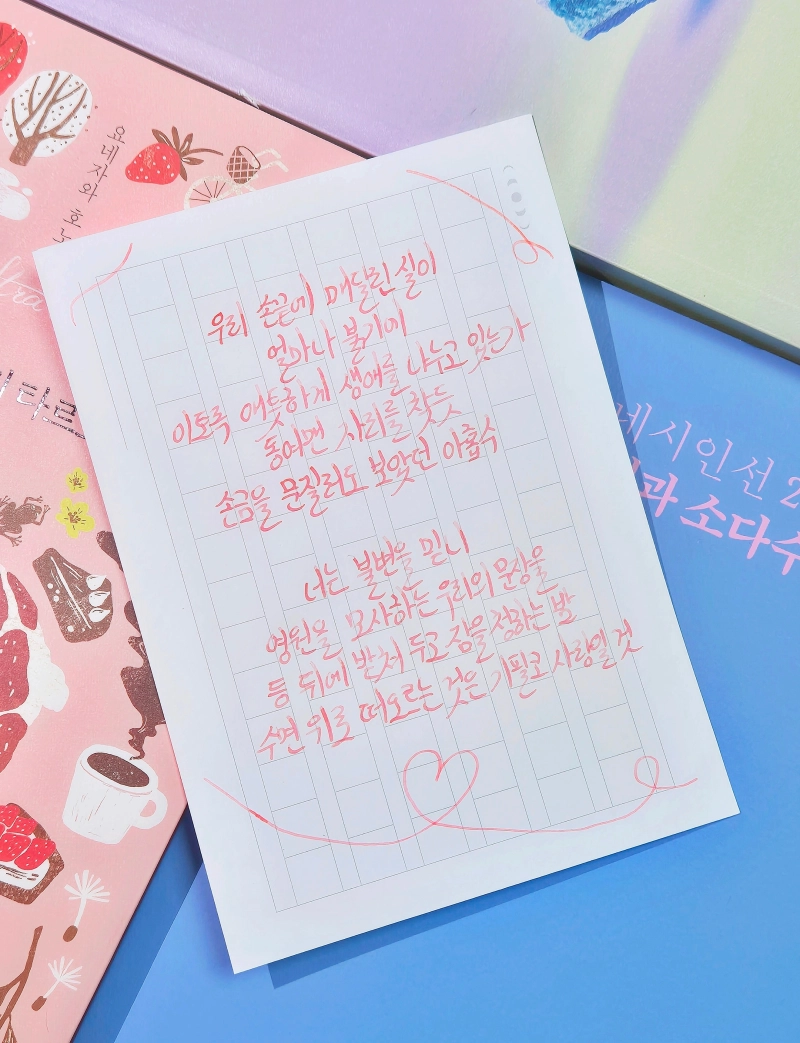 요네자와 호
타르
네시인선 2
과 소다수
우리 손끝에 매달린 실이
얼마나 붉기에
이토록 애틋하게 생애를 나누고 있는가
동여맨 자리를 찾듯
손금을 문질러도 보았던 아홉수
너는 불변을 믿니
영원을 묘사하는 우리의 문장을
등 뒤에 받쳐 두고 잠을 청하는 밤
수면 위로 떠오르는 것은 기필코 사랑일 것